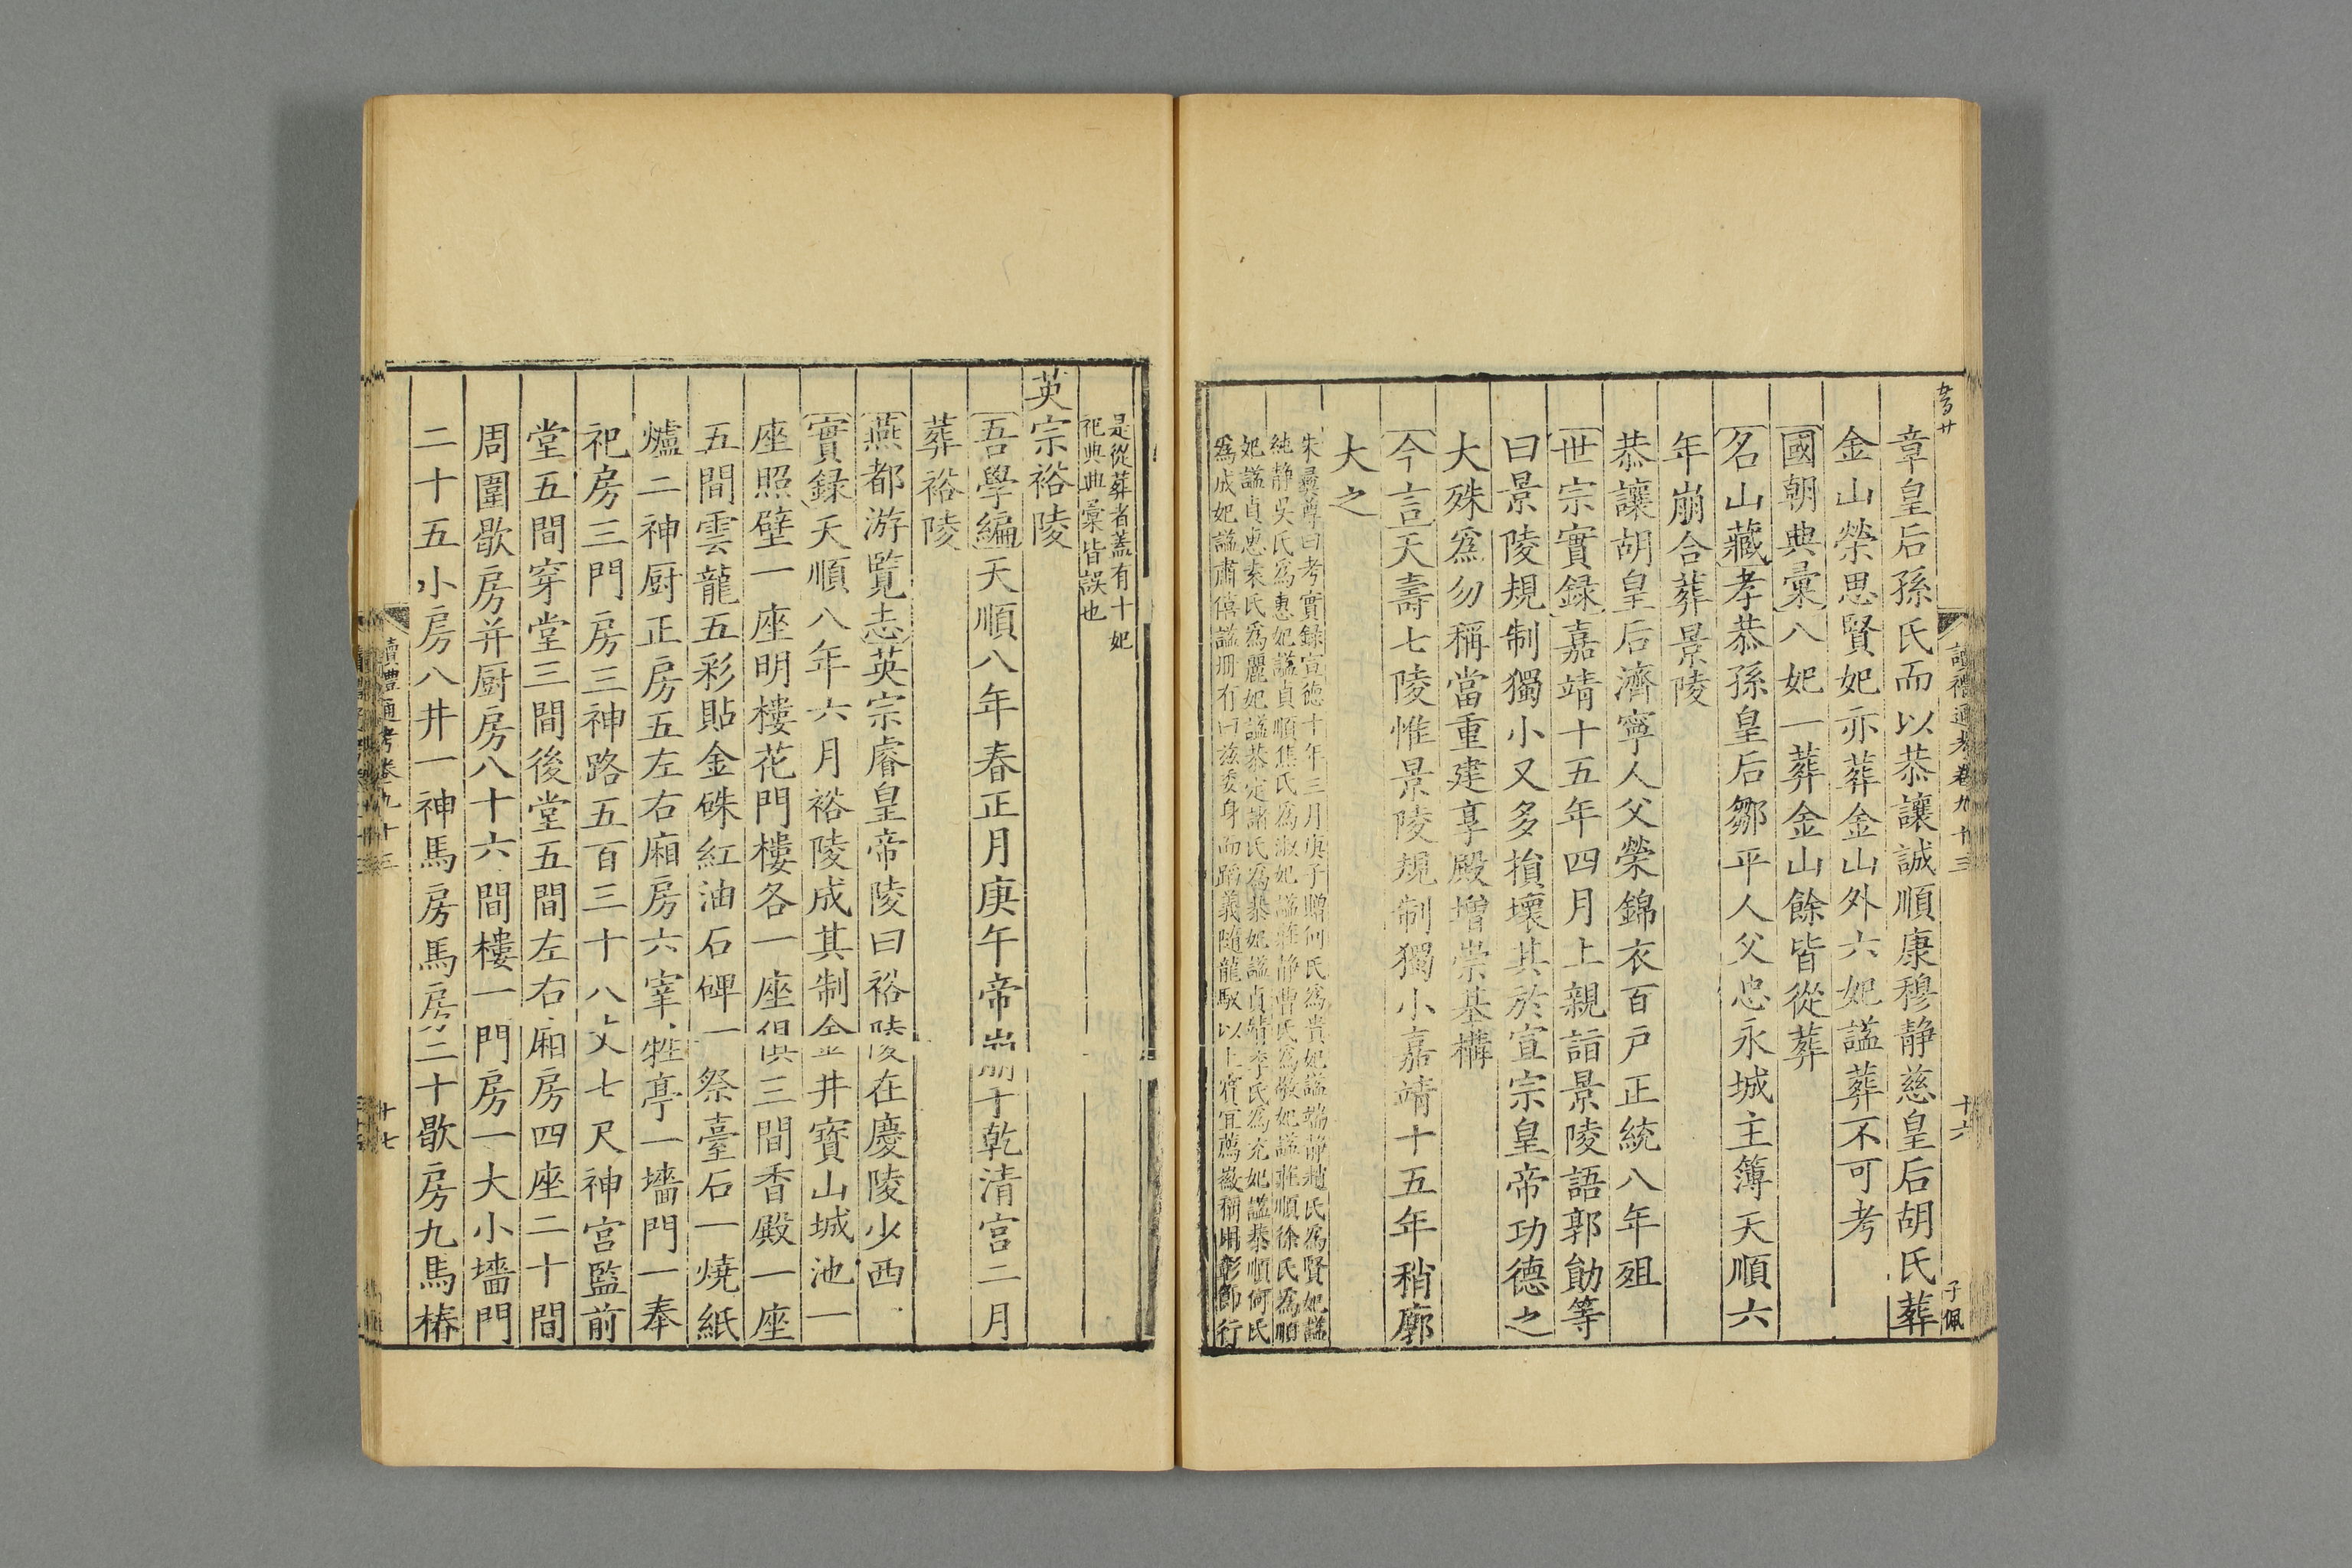 讀禮通考卷九十三
十六
子佩
章皇后孫氏而以恭讓誠順康穆静慈皇后胡氏葬
金山榮思賢妃亦葬金山外六妃諡葬不可考
國朝典彙八妃一葬金山餘皆從葬
名山藏孝恭孫皇后鄒平人父忠永城主簿天順六
年崩合葬景陵
恭讓胡皇后濟寧人父榮錦衣百戸正統八年殂
世宗實録嘉靖十五年四月上親詣景陵語郭勛等
曰景陵規制獨小又多損壞其於宣宗皇帝功德之
大殊爲勿稱當重建享殿增崇基構
今言天壽七陵惟景陵規制獨小嘉靖十五年稍廓
大之
朱彞尊曰考實録宣德十年三月庚子贈何氏爲貴妃諡端静趙氏爲賢妃諡
純静吳氏爲惠妃諡貞順焦氏爲淑妃諡莊静曹氏爲敬妃諡莊順徐氏爲順
妃諡貞惠袁氏爲麗妃諡恭定諸氏爲恭妃諡貞靖李氏爲充妃諡恭順何氏
爲成妃諡肅僖諡冊有曰兹委身而蹈義隨龍馭以上賓宜薦徽稱用彰節行
是從葬者蓋有十妃
祀典典彙皆誤也
英宗裕陵
吾學編天順八年春正月庚午帝崩于乾清宫二月
葬裕陵
燕都游覽志英宗睿皇帝陵曰裕陵在慶陵少西
實録天順八年六月裕陵成其制金井寶山城池一
座照壁一座明樓花門樓各一座俱三間香殿一座
五間雲龍五彩貼金硃紅油石碑一祭臺石一燒紙
爐二神厨正房五左右廂房六宰牲亭一墻門一奉
祀房三門房三神路五百三十八丈七尺神宫監前
堂五間穿堂三間後堂五間左右廂房四座二十間
周圍歇房并厨房八十六間樓一門房一大小墻門
二十五小房八井一神馬房馬房二十歇房九馬樁
讀禮通考卷九十三
十七